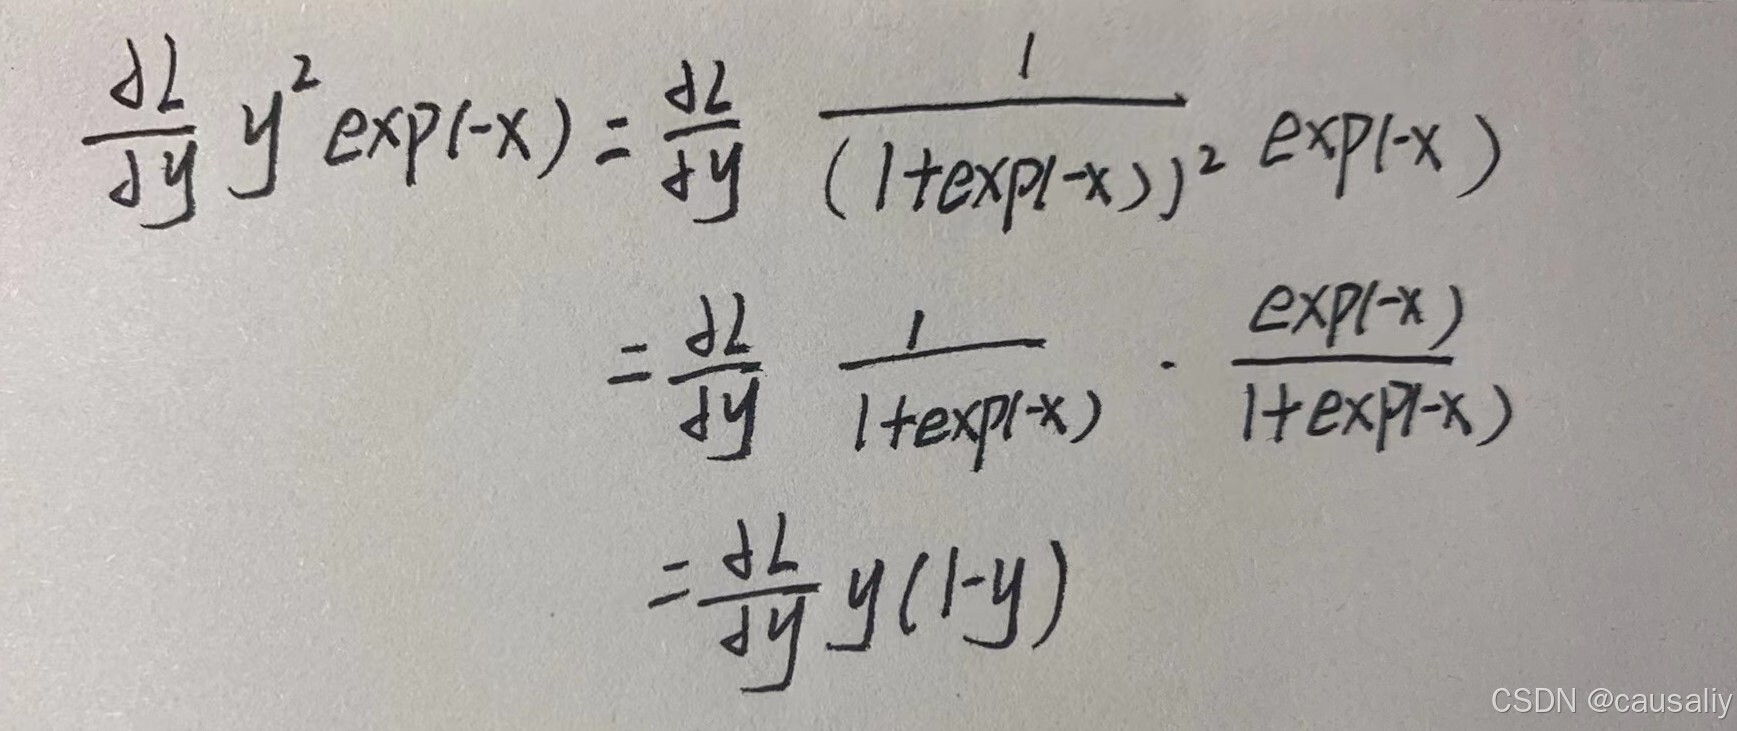 ∂L/∂y y² exp(-x) = ∂L/∂y 1/(1+exp(-x))² exp(-x)
= ∂L/∂y 1/(1+exp(-x)) · exp(-x)/(1+exp(-x))
= ∂L/∂y y(1-y)
CSDN @causaliy